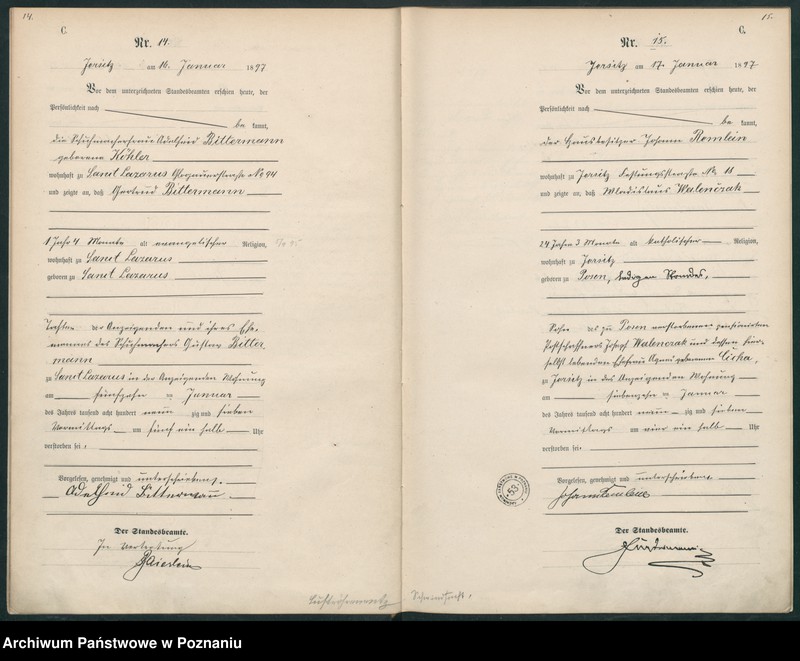 14.
C.
Nr. 14.
Jersitz am 16. Januar 1897
Vor dem unterzeichneten Standesbeamten erschien heute, der
Persönlichkeit nach
be kannt,
die Schuhmacherfrau Adelheid Bittermann
geborene Köhler
wohnhaft zu Sanct Lazarus Glogauerstraße No 94
und zeigte an, daß Gertrud Bittermann
1 Jahr 4 Monate alt evangelischer Religion,
wohnhaft zu Sanct Lazarus
geboren zu Sanct Lazarus
Tochter der Anzeigenden und ihres Ehe-
mannes des Schuhmachers Gustav Bitter
mann
zu Sanct Lazarus in der Anzeigenden Wohnung
am fünfzehn ten Januar
des Jahres tausend acht hundert neun zig und sieben
Vormittags um fünf ein halb Uhr
verstorben sei.
Vorgelesen, genehmigt und unterschrieben.
Adelheid Bittermann
Der Standesbeamte.
In Vertretung
15.
C.
Nr. 15.
Jersitz am 17. Januar 1897
Vor dem unterzeichneten Standesbeamten erschien heute, der
Persönlichkeit nach
be kannt,
der Hausbesitzer Johann Remlein
wohnhaft zu Jersitz Festungsstraße No 18
und zeigte an, daß Wladislaus Walenčzak
24 Jahre 3 Monate alt katholischer Religion,
wohnhaft zu Jersitz
geboren zu Posen, ledigen Standes,
Sohn des zu Posen verstorbenen pensionirten
Postschaffners Joseph Walenczak und dessen hier-
selbst lebenden Ehefrau Agnes geborenen Cicha,
zu Jersitz in des Anzeigenden Wohnung
am siebenzehn ten Januar
des Jahres tausend acht hundert neun zig und sieben
Vormittags um vier ein halb Uhr
verstorben sei.
Vorgelesen, genehmigt und unterschrieben.
Johann Remlein
Der Standesbeamte.
53
Schwindsucht.
Archiwum Państwowe w Poznaniu